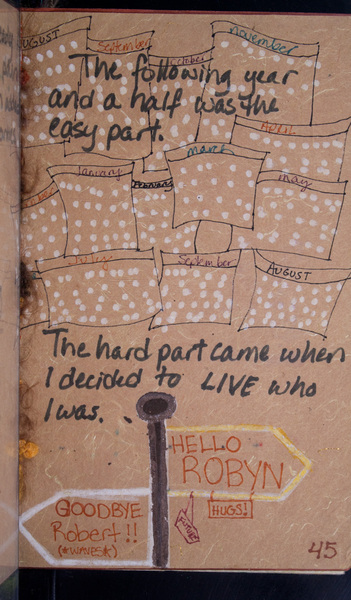 AUGUST
September
October
november
The following year
and a half was the
easy part.
APRIL
march
January
may
July
September
AUGUST
The hard part came when
I decided to LIVE who
I was...
HELLO
ROBYN
HUGS!
GOODBYE
Robert!!
(*WAVES*)
45